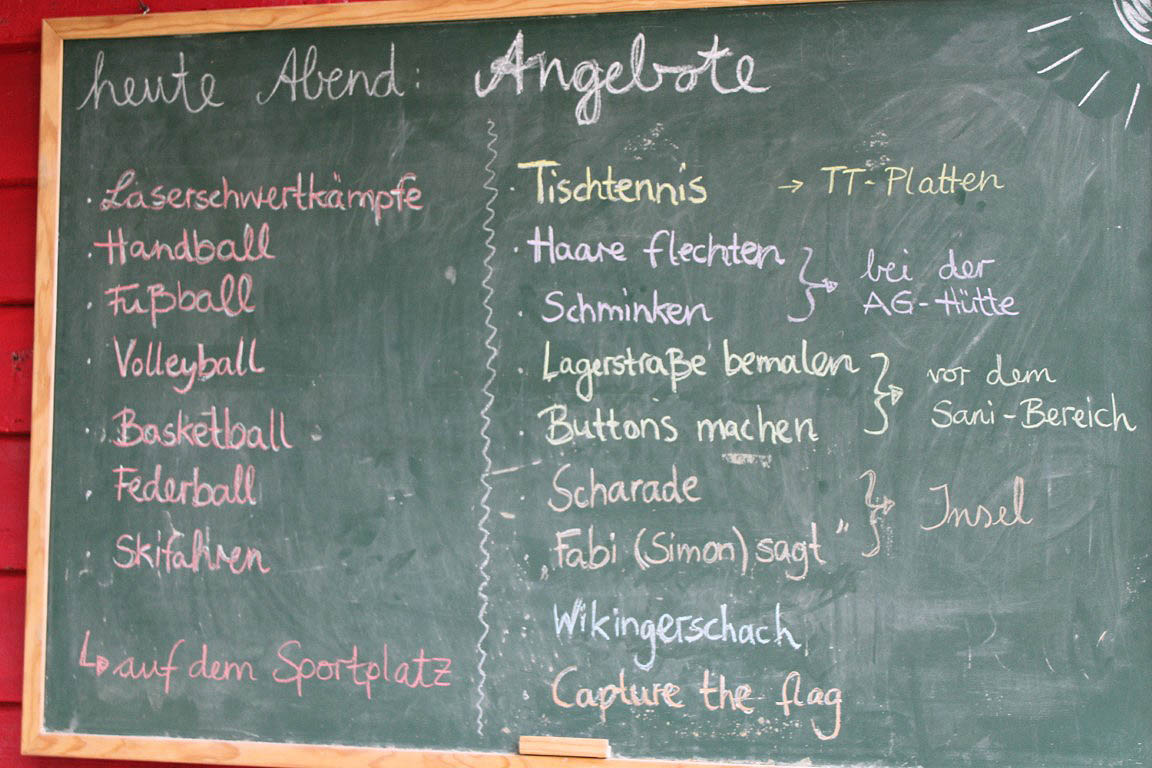 heute Abend: Angebote
· Laserschwertkämpfe
· Handball
· Fußball
Volleyball
· Basketball
· Federball
· Skifahren
↳ auf dem Sportplatz
· Tischtennis → TT-Platten
· Haare flechten
· Schminken
} → bei der
AG-Hütte
· Lagerstraße bemalen
· Buttons machen
} → vor dem
Sani-Bereich
· Scharade
„Fabi (Simon) sagt"
} → Insel
Wikingerschach
· Capture the flag